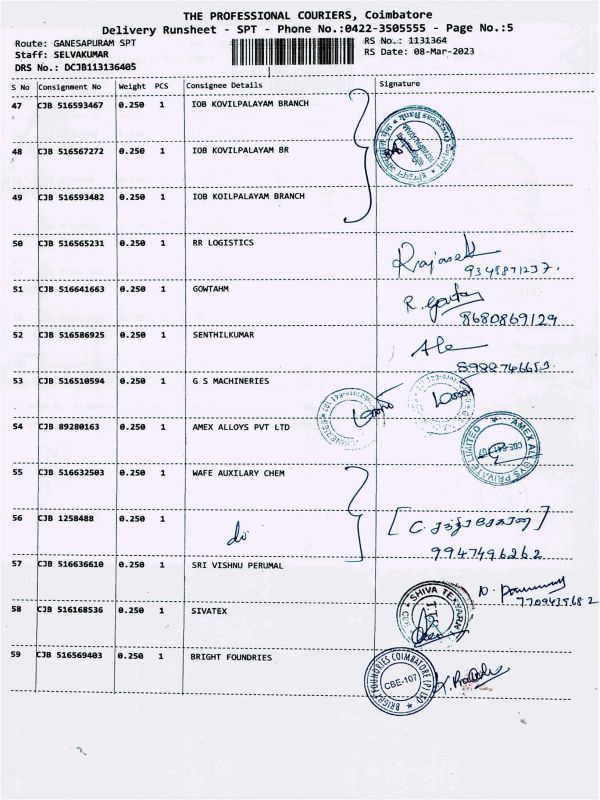 THE PROFESSIONAL COURIERS, Coimbatore
Delivery Runsheet - SPT - Phone No.:0422-3505555 - Page No.:5
Route: GANESAPURAM SPT
RS No.: 1131364
Staff: SELVAKUMAR
RS Date: 08-Mar-2023
DRS No.: DCJB113136405
S No Consignment No Weight PCS Consignee Details Signature
47 CJB 516593467 0.250 1 IOB KOVILPALAYAM BRANCH
48 CJB 516567272 0.250 1 IOB KOVILPALAYAM BR
49 CJB 516593482 0.250 1 IOB KOILPALAYAM BRANCH
50 CJB 516565231 0.250 1 RR LOGISTICS
9348871237.
51 CJB 516641663 0.250 1 GOWTAHM
8680869129
52 CJB 516586925 0.250 1 SENTHILKUMAR
8988746653
53 CJB 516510594 0.250 1 G S MACHINERIES
54 CJB 89280163 0.250 1 AMEX ALLOYS PVT LTD
AMEX ALLOYS PRIVATE LIMITED
55 CJB 516632503 0.250 1 WAFE AUXILARY CHEM
56 CJB 1258488 0.250 1 do
9947496262
57 CJB 516636610 0.250 1 SRI VISHNU PERUMAL
7709435682
58 CJB 516168536 0.250 1 SIVATEX
59 CJB 516569403 0.250 1 BRIGHT FOUNDRIES
BRIGHT FOUNDRIES COIMBATORE (P) LTD
CBE-107